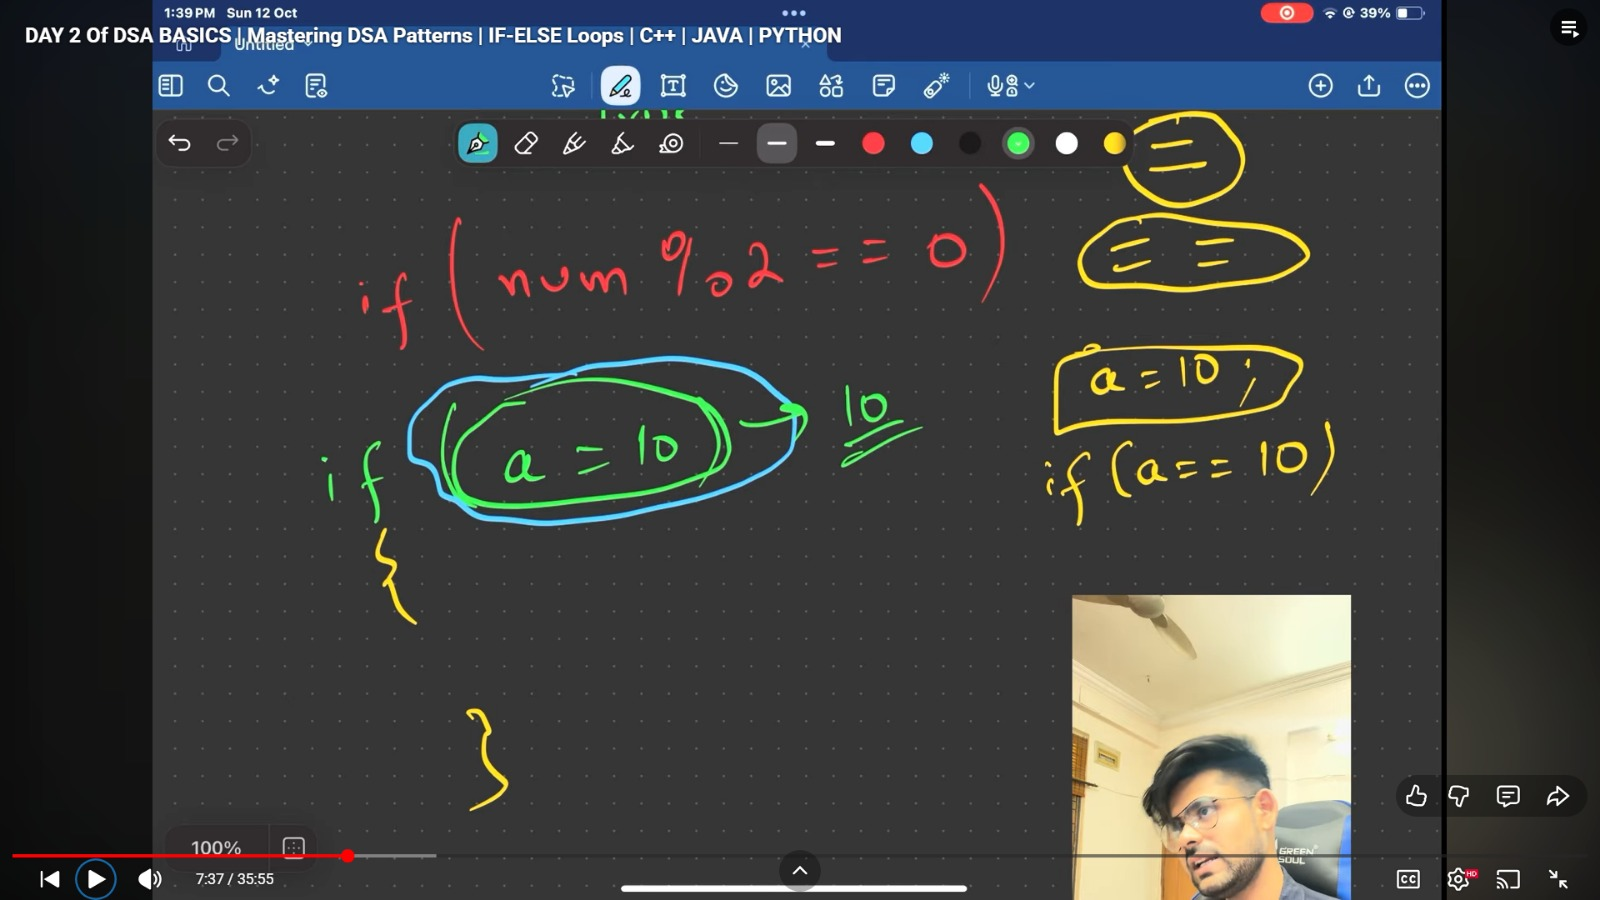 1:39 PM Sun 12 Oct
39%
DAY 2 Of DSA BASICS | Mastering DSA Patterns | IF-ELSE Loops | C++ | JAVA | PYTHON
Untitled
if (num % 2 == 0)
=
= =
a = 10;
if (a = 10) → 10
if (a == 10)
{
}
GREEN SOUL
100%
7:37 / 35:55
CC
HD